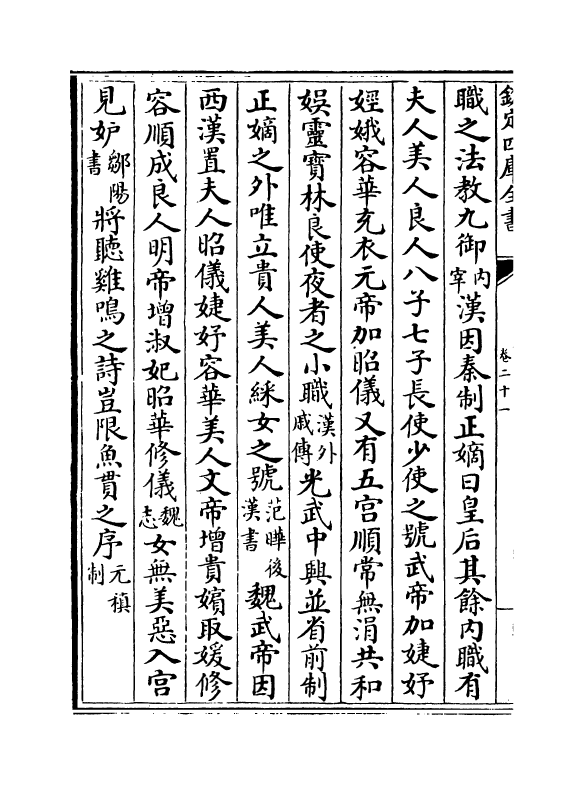 欽定四庫全書
卷二十一
職之法教九御內宰漢因秦制正嫡曰皇后其餘內職有
夫人美人良人八子七子長使少使之號武帝加婕妤
婬娥容華充衣元帝加昭儀又有五官順常無涓共和
娛靈寶林良使夜者之小職漢外戚傳光武中興並省前制
正嫡之外唯立貴人美人綵女之號范曄後漢書魏武帝因
西漢置夫人昭儀婕妤容華美人文帝增貴嬪取媛修
容順成良人明帝增淑妃昭華修儀魏志女無美惡入宮
見妒鄒陽書將聽雞鳴之詩豈限魚貫之序元稹制